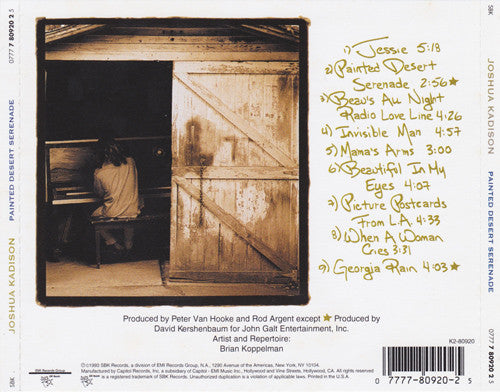 SBK
0777 7 80920 2 5
PAINTED DESERT SERENADE
JOSHUA KADISON
1) Jessie 5:18
2) Painted Desert
Serenade 2:56 ★
3) Beau's All Night
Radio Love Line 4:26
4) Invisible Man 4:57
5) Mama's Arms 3:00
6) Beautiful In My
Eyes 4:07
7) Picture Postcards
From L.A. 4:33
8) When A Woman
Cries 3:31
9) Georgia Rain 4:03 ★
Produced by Peter Van Hooke and Rod Argent except ★ Produced by
David Kershenbaum for John Galt Entertainment, Inc.
Artist and Repertoire:
Brian Koppelman
K2-80920
EMI Records Group
©1993 SBK Records, a division of EMI Records Group, N.A., 1290 Avenue of the Americas, New York, NY 10104.
Manufactured by Capitol Records, Inc. a subsidiary of Capitol - EMI Music Inc., Hollywood and Vine Streets, Hollywood, CA. All rights reserved.
is a trademark of SBK Records. Unauthorized duplication is a violation of applicable laws. Printed in the U.S.A.
0 7777-80920-2 5
JOSHUA KADISON
PAINTED DESERT SERENADE
0777 7 80920 2 5
SBK